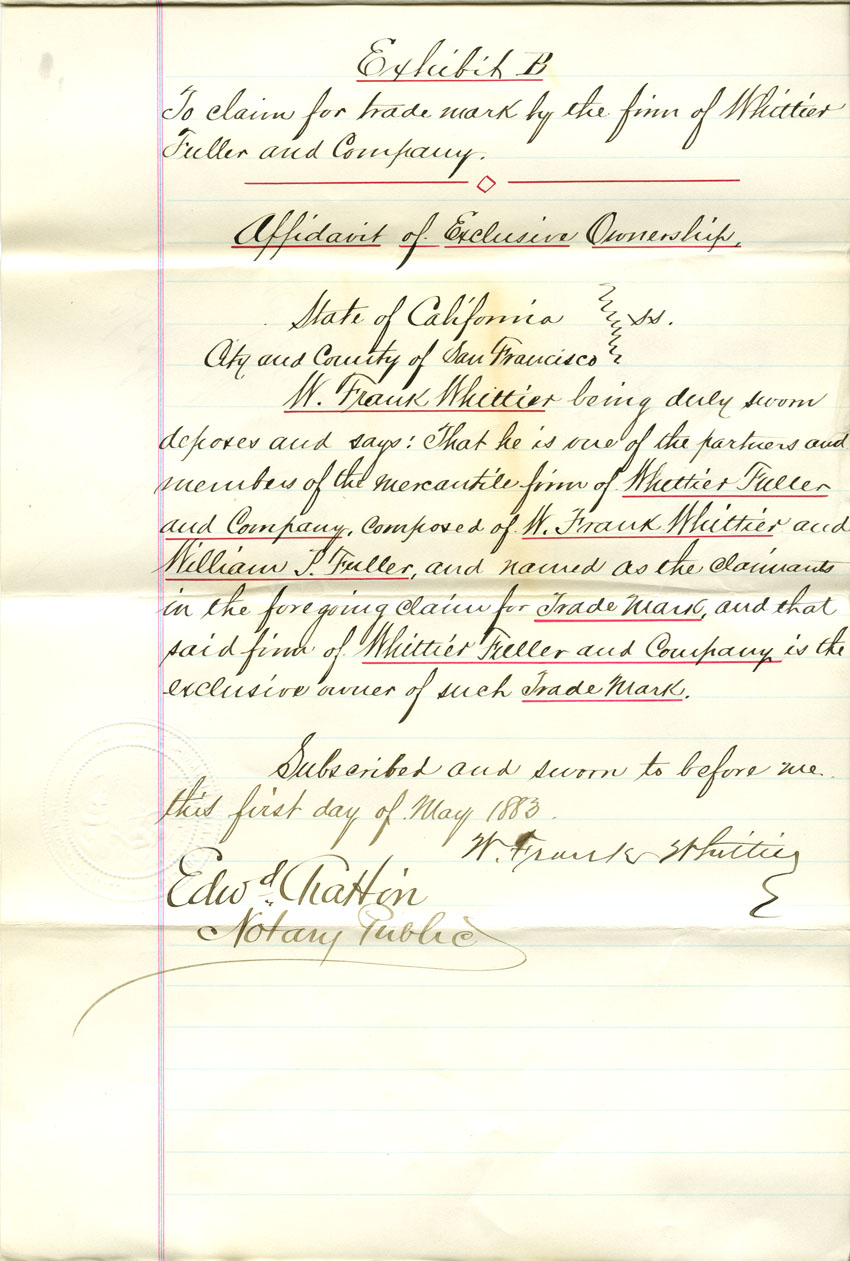 Exhibit B
To claim for trade mark by the firm of Whittier
Fuller and Company.
Affidavit of Exclusive Ownership.
State of California } ss.
City and County of San Francisco
W. Frank Whittier being duly sworn
deposes and says: That he is one of the partners and
members of the mercantile firm of Whittier Fuller
and Company, composed of W. Frank Whittier and
William P. Fuller, and named as the claimants
in the foregoing claim for Trade Mark, and that
said firm of Whittier Fuller and Company is the
exclusive owner of such Trade Mark.
Subscribed and sworn to before me
this first day of May 1883.
W. Frank Whittier
Edwd. Chattin
Notary Public